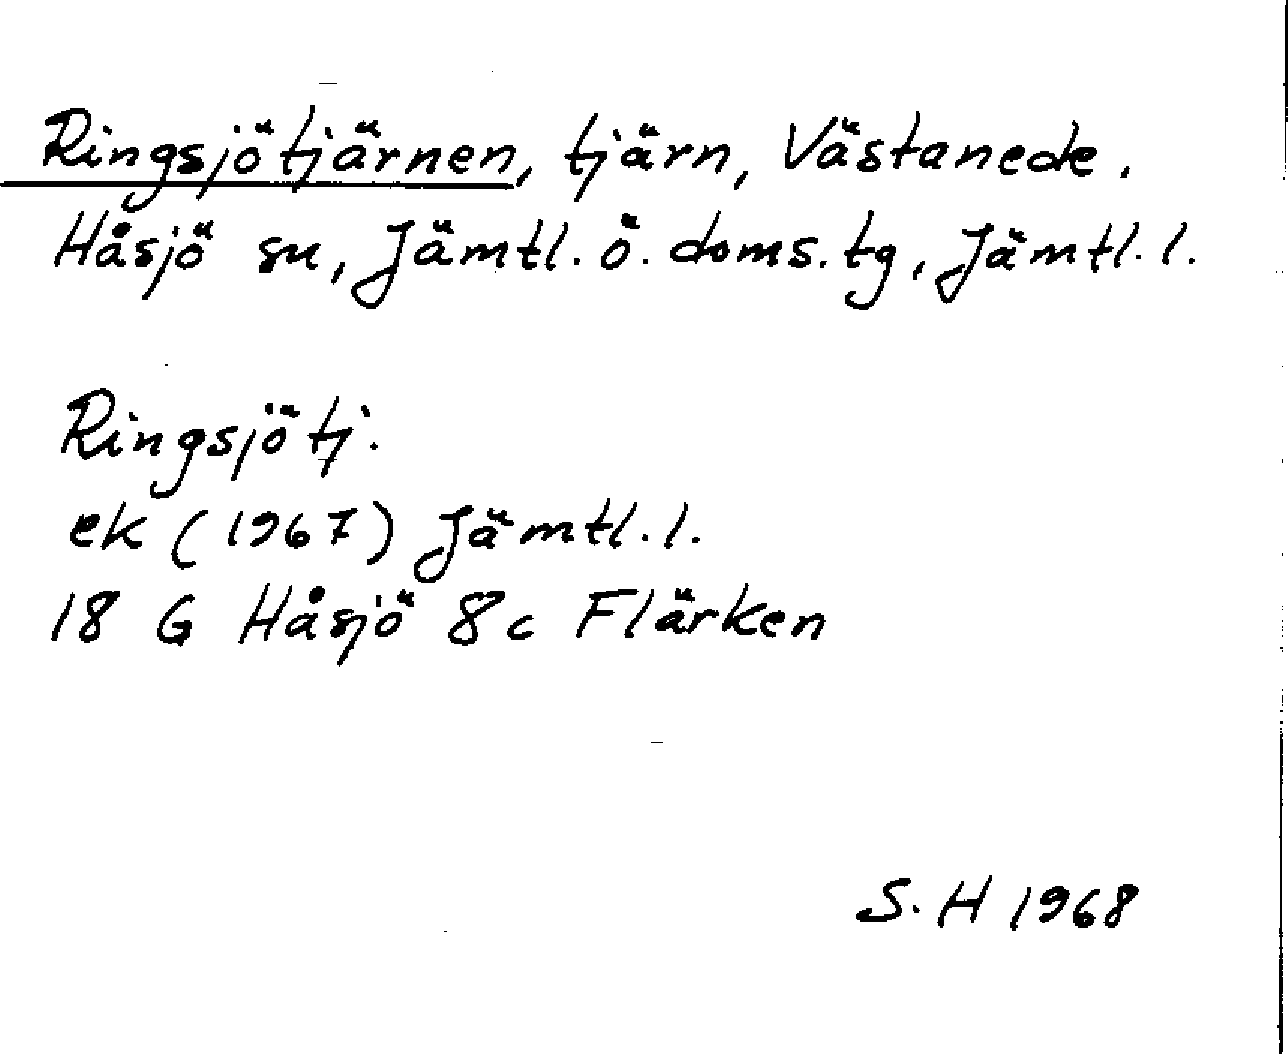 Ringsjötjärnen, tjärn, Västanede.
Håsjö sn, Jämtl. ö. doms. tg, Jämtl. l.
Ringsjötj.
ek (1967) Jämtl. l.
18 G Håsjö 8c Flärken
S. H 1968